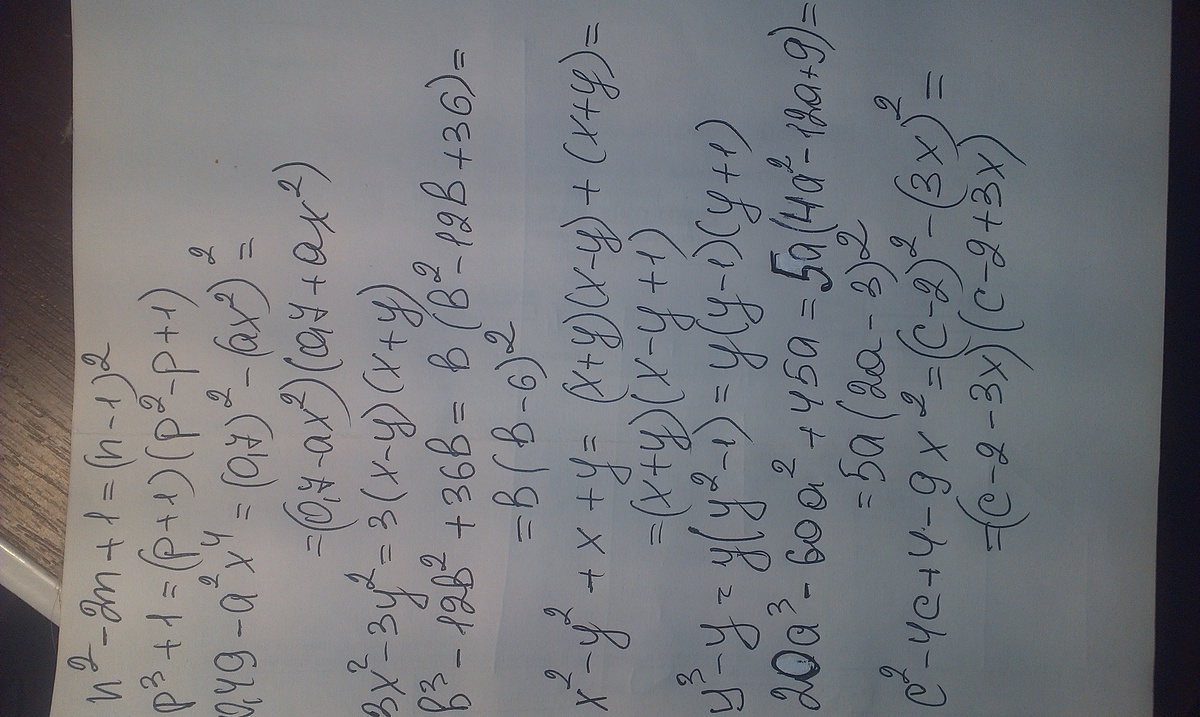 n² - 2n + 1 = (n - 1)²
p³ + 1 = (p + 1)(p² - p + 1)
0,49 - a²x⁴ = (0,7)² - (ax²)² =
= (0,7 - ax²)(0,7 + ax²)
3x² - 3y² = 3(x - y)(x + y)
в³ - 12в² + 36в = в(в² - 12в + 36) =
= в(в - 6)²
x² - y² + x + y = (x + y)(x - y) + (x + y) =
= (x + y)(x - y + 1)
y³ - y = y(y² - 1) = y(y - 1)(y + 1)
20a³ - 60a² + 45a = 5a(4a² - 12a + 9) =
= 5a(2a - 3)²
c² - 4c + 4 - 9x² = (c - 2)² - (3x)² =
= (c - 2 - 3x)(c - 2 + 3x)